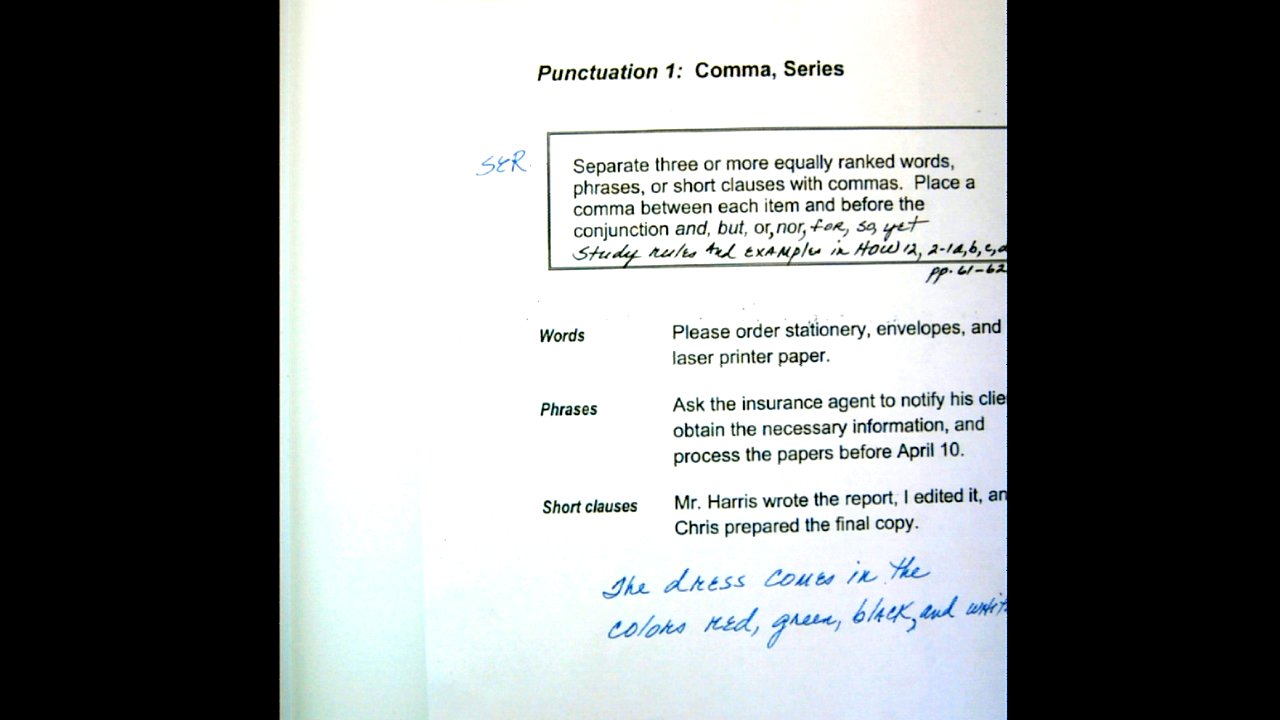 Punctuation 1: Comma, Series
SER.
Separate three or more equally ranked words,
phrases, or short clauses with commas. Place a
comma between each item and before the
conjunction and, but, or, nor, for, so, yet
Study rules and examples in HOW 12, 2-1a,b,c,d
pp. 61-62
Words
Please order stationery, envelopes, and
laser printer paper.
Phrases
Ask the insurance agent to notify his clie
obtain the necessary information, and
process the papers before April 10.
Short clauses
Mr. Harris wrote the report, I edited it, an
Chris prepared the final copy.
The dress comes in the
colors red, green, black, and whit